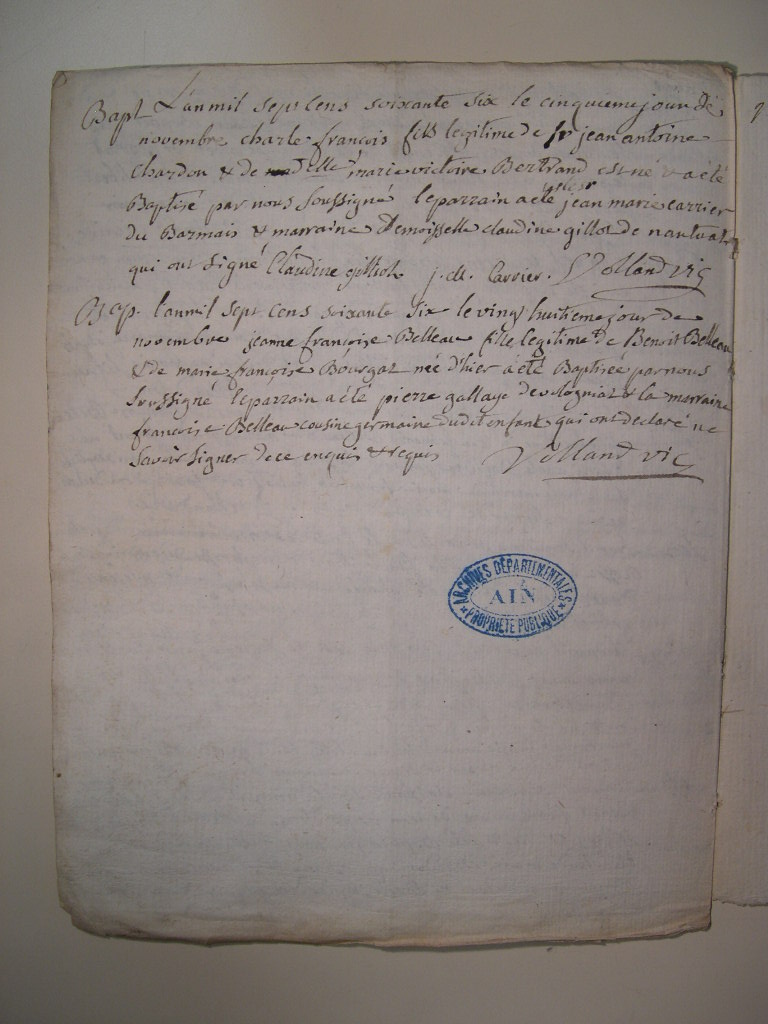 Bapt L'an mil sept cens soixante six le cinquieme jour de
novembre charle françois fils legitime de sr jean antoine
chardon & de delle marie victoire Bertrand est né & a été
Baptisé par nous soussigné le parrain a été sieur jean marie carrier
du Barmais & marraine Demoiselle claudine gillot de nantuat
qui ont signé Claudine gilliot j. m. Carrier. Volland vic
Bap. l'an mil sept cens soixante six le vingt huitieme jour de
novembre jeanne françoise Belleau fille legitime de Benoit Belleau
& de marie françoise Bourgat née d'hier a été Baptisée par nous
soussigné le parrain a été pierre gallaye de volognat & la marraine
françoise Belleau cousine germaine dudit enfant qui ont declaré ne
savoir signer de ce enquis & requis Volland vic
ARCHIVES DÉPARTEMENTALES
AIN
PROPRIÉTÉ PUBLIQUE